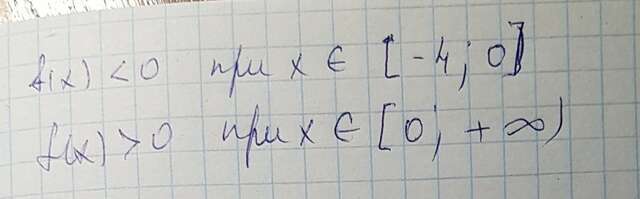 f(x) < 0 при x ∈ [-4; 0]
f(x) > 0 при x ∈ [0; +∞)